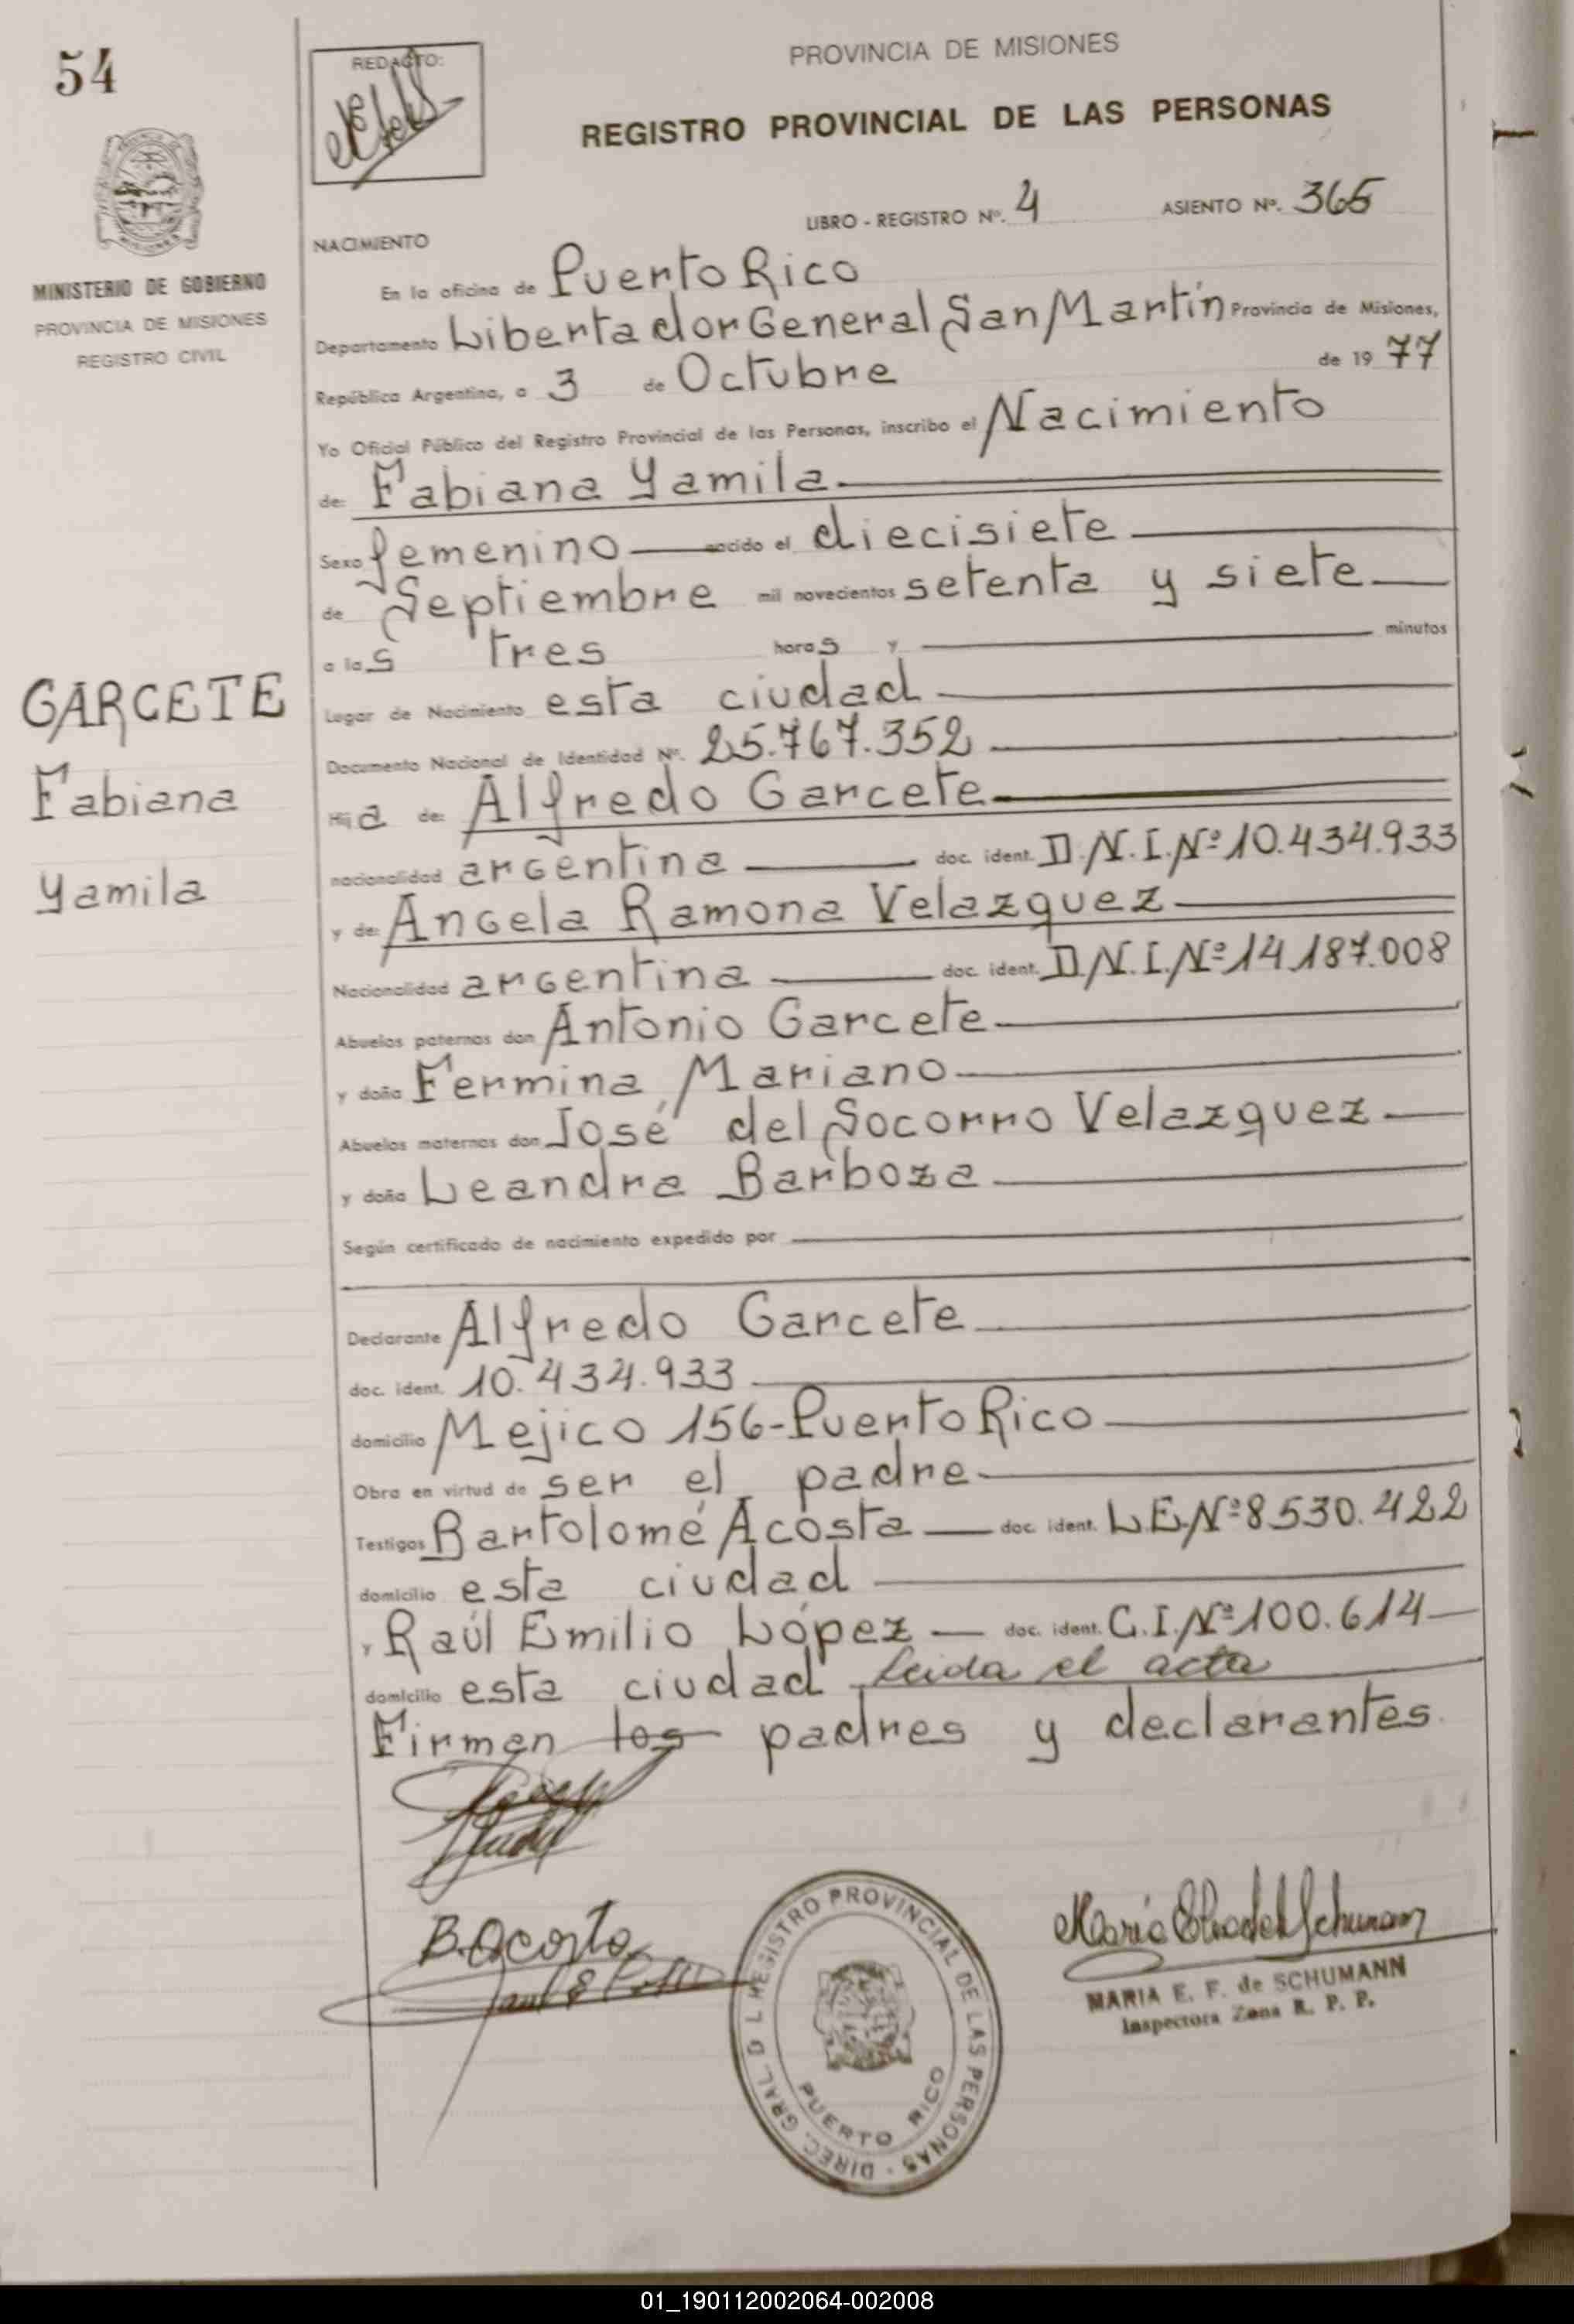 54
REDACTO:
PROVINCIA DE MISIONES
REGISTRO PROVINCIAL DE LAS PERSONAS
LIBRO - REGISTRO Nº. 4 ASIENTO Nº. 365
NACIMIENTO
MINISTERIO DE GOBIERNO
PROVINCIA DE MISIONES
REGISTRO CIVIL
En la oficina de Puerto Rico
Departamento Libertador General San Martín Provincia de Misiones,
República Argentina, a 3 de Octubre de 1977
Yo Oficial Público del Registro Provincial de las Personas, inscribo el Nacimiento
de: Fabiana Yamila
Sexo femenino nacido el diecisiete
de Septiembre mil novecientos setenta y siete
a las tres horas y minutos
GARCETE
Fabiana
Yamila
Lugar de Nacimiento esta ciudad
Documento Nacional de Identidad Nº. 25.767.352
Hija de: Alfredo Garcete
nacionalidad argentina doc. ident. D.N.I.Nº 10.434.933
y de: Angela Ramona Velazquez
Nacionalidad argentina doc. ident. D.N.I.Nº 14.187.008
Abuelos paternos don Antonio Garcete
y doña Fermina Mariano
Abuelos maternos don José del Socorro Velazquez
y doña Leandra Barboza
Según certificado de nacimiento expedido por
Declarante Alfredo Garcete
doc. ident. 10.434.933
domicilio Mejico 156-Puerto Rico
Obra en virtud de ser el padre
Testigos Bartolomé Acosta doc. ident. L.E.Nº 8530.422
domicilio esta ciudad
y Raúl Emilio López doc. ident. C.I.Nº 100.614
domicilio esta ciudad Leida el acta
Firman los padres y declarantes.
B. Acosta
DIREC. GRAL. D L REGISTRO PROVINCIAL DE LAS PERSONAS
PUERTO RICO
MARIA E. F. de SCHUMANN
Inspectora Zona R. P. P.
01_190112002064-002008